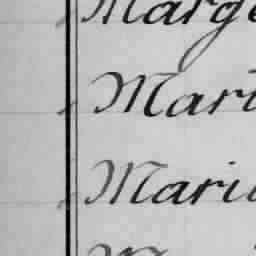 Marge
Mart
Maria